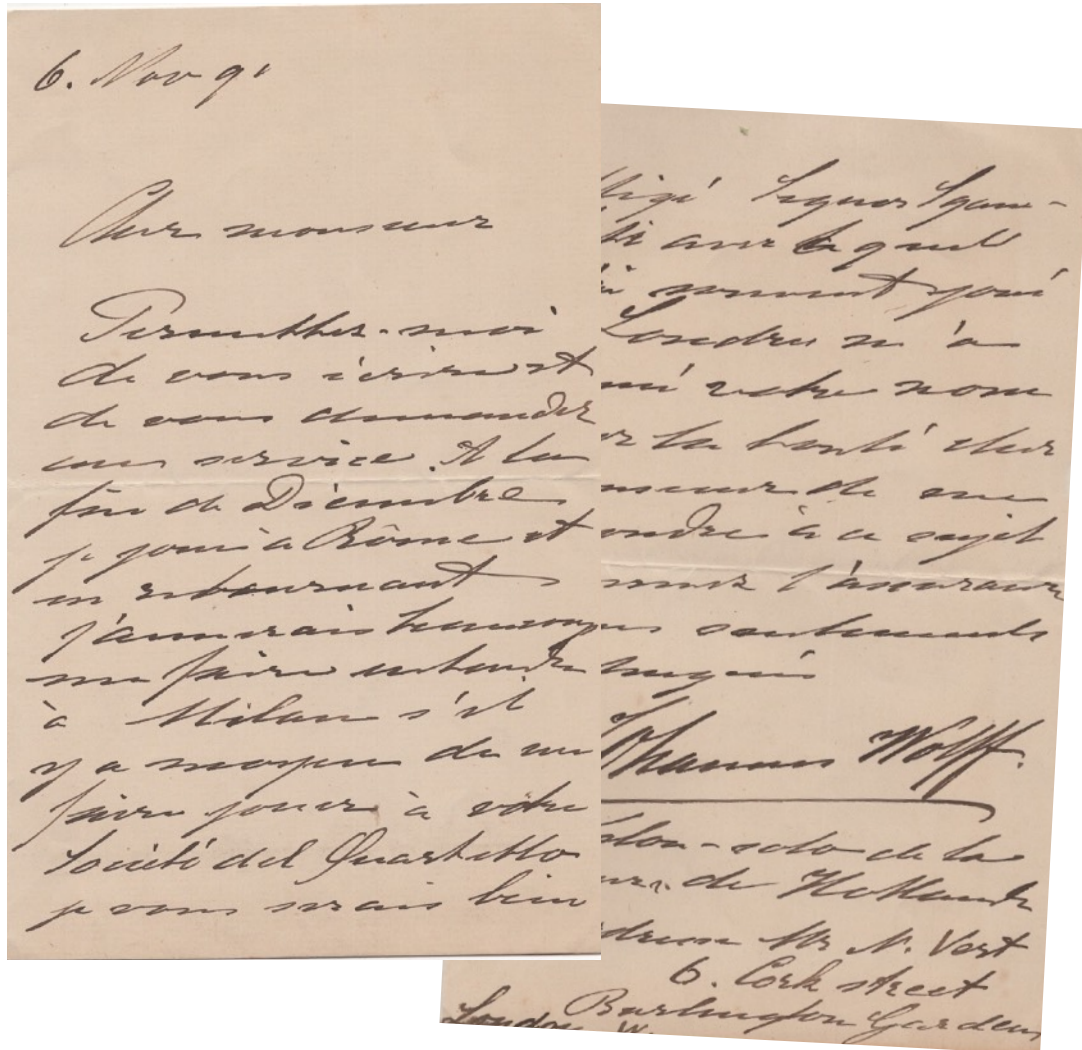 6. Nov 91
Cher monsieur
Permettez-moi
de vous écrire et
de vous demander
un service. A la
fin de Décembre
je joue à Rôme et
en retournant
j'aimerais beaucoup
me faire entendre
à Milan s'il
y a moyen de me
faire jouer à votre
Société del Quartetto
je vous serais bien
Signor Sgam-
avec lequel
souvent joué
Londres m'a
votre nom
la bonté cher
de me
à ce sujet
l'assurance
sentiments
Johannes Wolff.
-solo de la
de Hollande
Mr N. Vert
6. Cork street
Burlington Gardens
London W